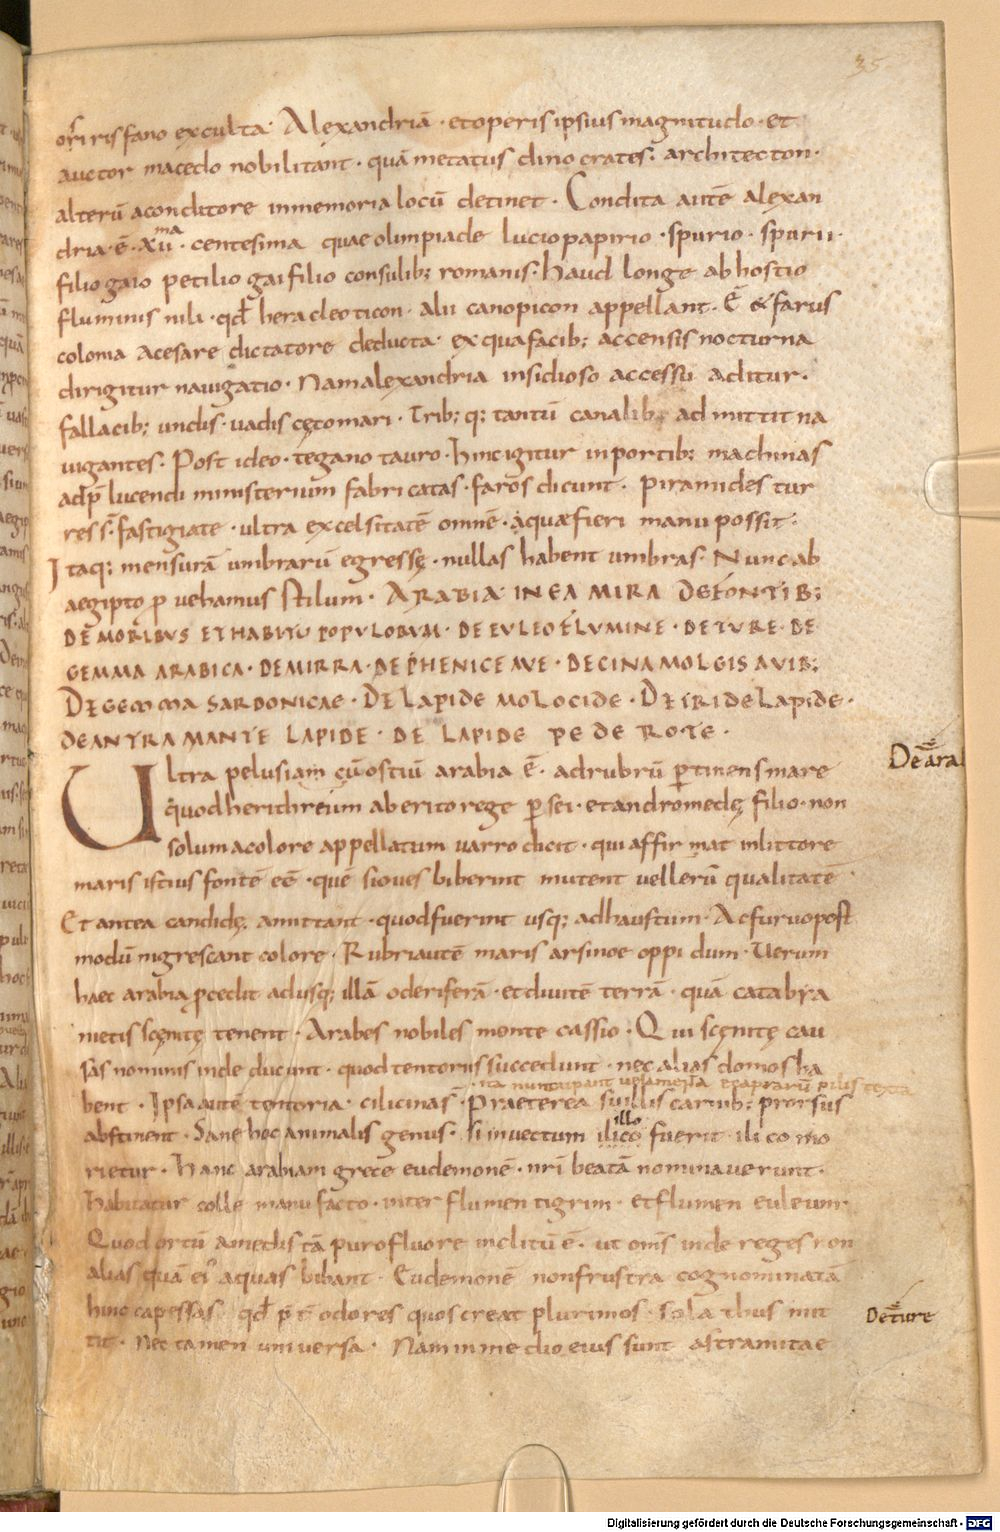 35
osiri ris fano exculta. Alexandriā · et operis ipsius magnitudo · et
auctor macedo nobilitant · quā metatus dino crates. architecton ·
alterū aconditore inmemoria locū detinet · Condita autē alexan
dria · ē · xii^ma · centesima quae olimpiade lucio papirio · spurio · spurii ·
filio gaio petilio gai filio consulib; romanis. haud longe ab hostio
fluminis nili · qđ heracleoticon · alii canopicon appellant · Ē & farus
colonia acesare dictatore deducta · ex qua facib; accensis nocturna
dirigitur navigatio · Nam alexandria insidioso accessu aditur.
fallacib; undis · vadis cętomari · Trib; q; tantū canalib; admittit na
uigantes. Post ideo · tegano tauro. hinc igitur inportib; machinas
adp̄lucendi ministerium fabricatas · farōs dicunt · Piramides tur
res s̄. fastigiate · ultra excelsitatē omnē · aquae fieri manu possit ·
Itaq; mensurā umbrarū egressę · nullas habent umbras · Nunc ab
aegipto p̄ uehamus stilum · ARABIA IN EA MIRA DE FONTIB;
DE MORIBUS ET HABITU POPULORUM · DE EULEO FLUMINE · DE TURE · DE
GEMMA ARABICA · DE MIRRA · DE PHENICE AVE · DE CINAMOLGIS AVIB;
DE GEMMA SARDONICAE · DE LAPIDE MOLOCIDE · DE IRIDE LAPIDE ·
DE ANTRAMANTE LAPIDE · DE LAPIDE PEDEROTE ·
Ultra pelusiam cū ostiū arabia ē · ad rubrū p̄tinens mare
De ara
quod herithreum ab erito rege p̄sei · et andromedę filio · non
solum acolore appellatum varro dicit · qui affirmat inlittore
maris istius fontē eē · quē si oves biberint mutent vellerū qualitatē
Et antea candidę. amittant · quod fuerint usq; ad haustum · Ac furuo post
modū nigrescant colore · Rubri autē maris arsinoe oppidum · Verum
haec arabia p̄cedit ad usq; illā oderiferā · et divitē terrā · quā catabya
metis scęnitę tenent · Arabes nobiles monte cassio · Qui scęnitę cau
sas nominis inde ducunt · quod tentoriis succedunt · nec alias domos ha
· ita nuncupant velamenta e caprarū pilis texta
bent · Ipsa autē tentoria · cilicinas · Praeterea suillis carnib; prorsus
abstinent · Sane hoc animalis genus · si invectum ilico fuerit · ilico mo
illo
rietur · hanc arabiam grece eudemonē · nr̄i beatā nominaverunt ·
habitatur colle manu facto · inter flumen tigrim · et flumen euleum ·
Quod ortū amedis tā puro fluore inclitū ē · ut om̄s inde reges non
alias quā ei' aquas bibant · Eudemonē non frustra cognominatā
hinc capessas · qđ p̄t̄ odores quos creat plurimos · sola thus mit
De ture
tit · Nec tamen universa · Nam in medio eius sunt astramitae
Digitalisierung gefördert durch die Deutsche Forschungsgemeinschaft - DFG